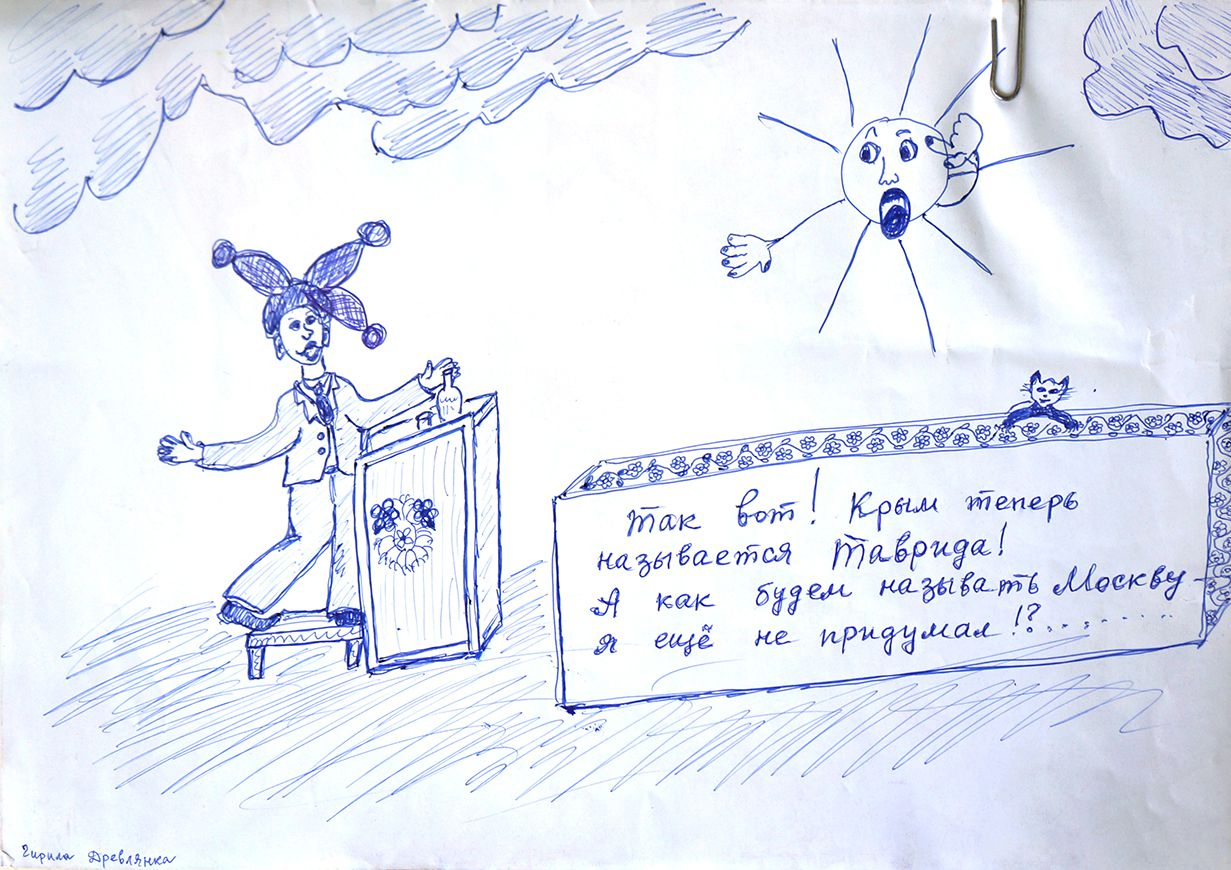 Так вот! Крым теперь
называется Таврида!
А как будем называть Москву -
я ещё не придумал!?..........
Чирила Древлянка